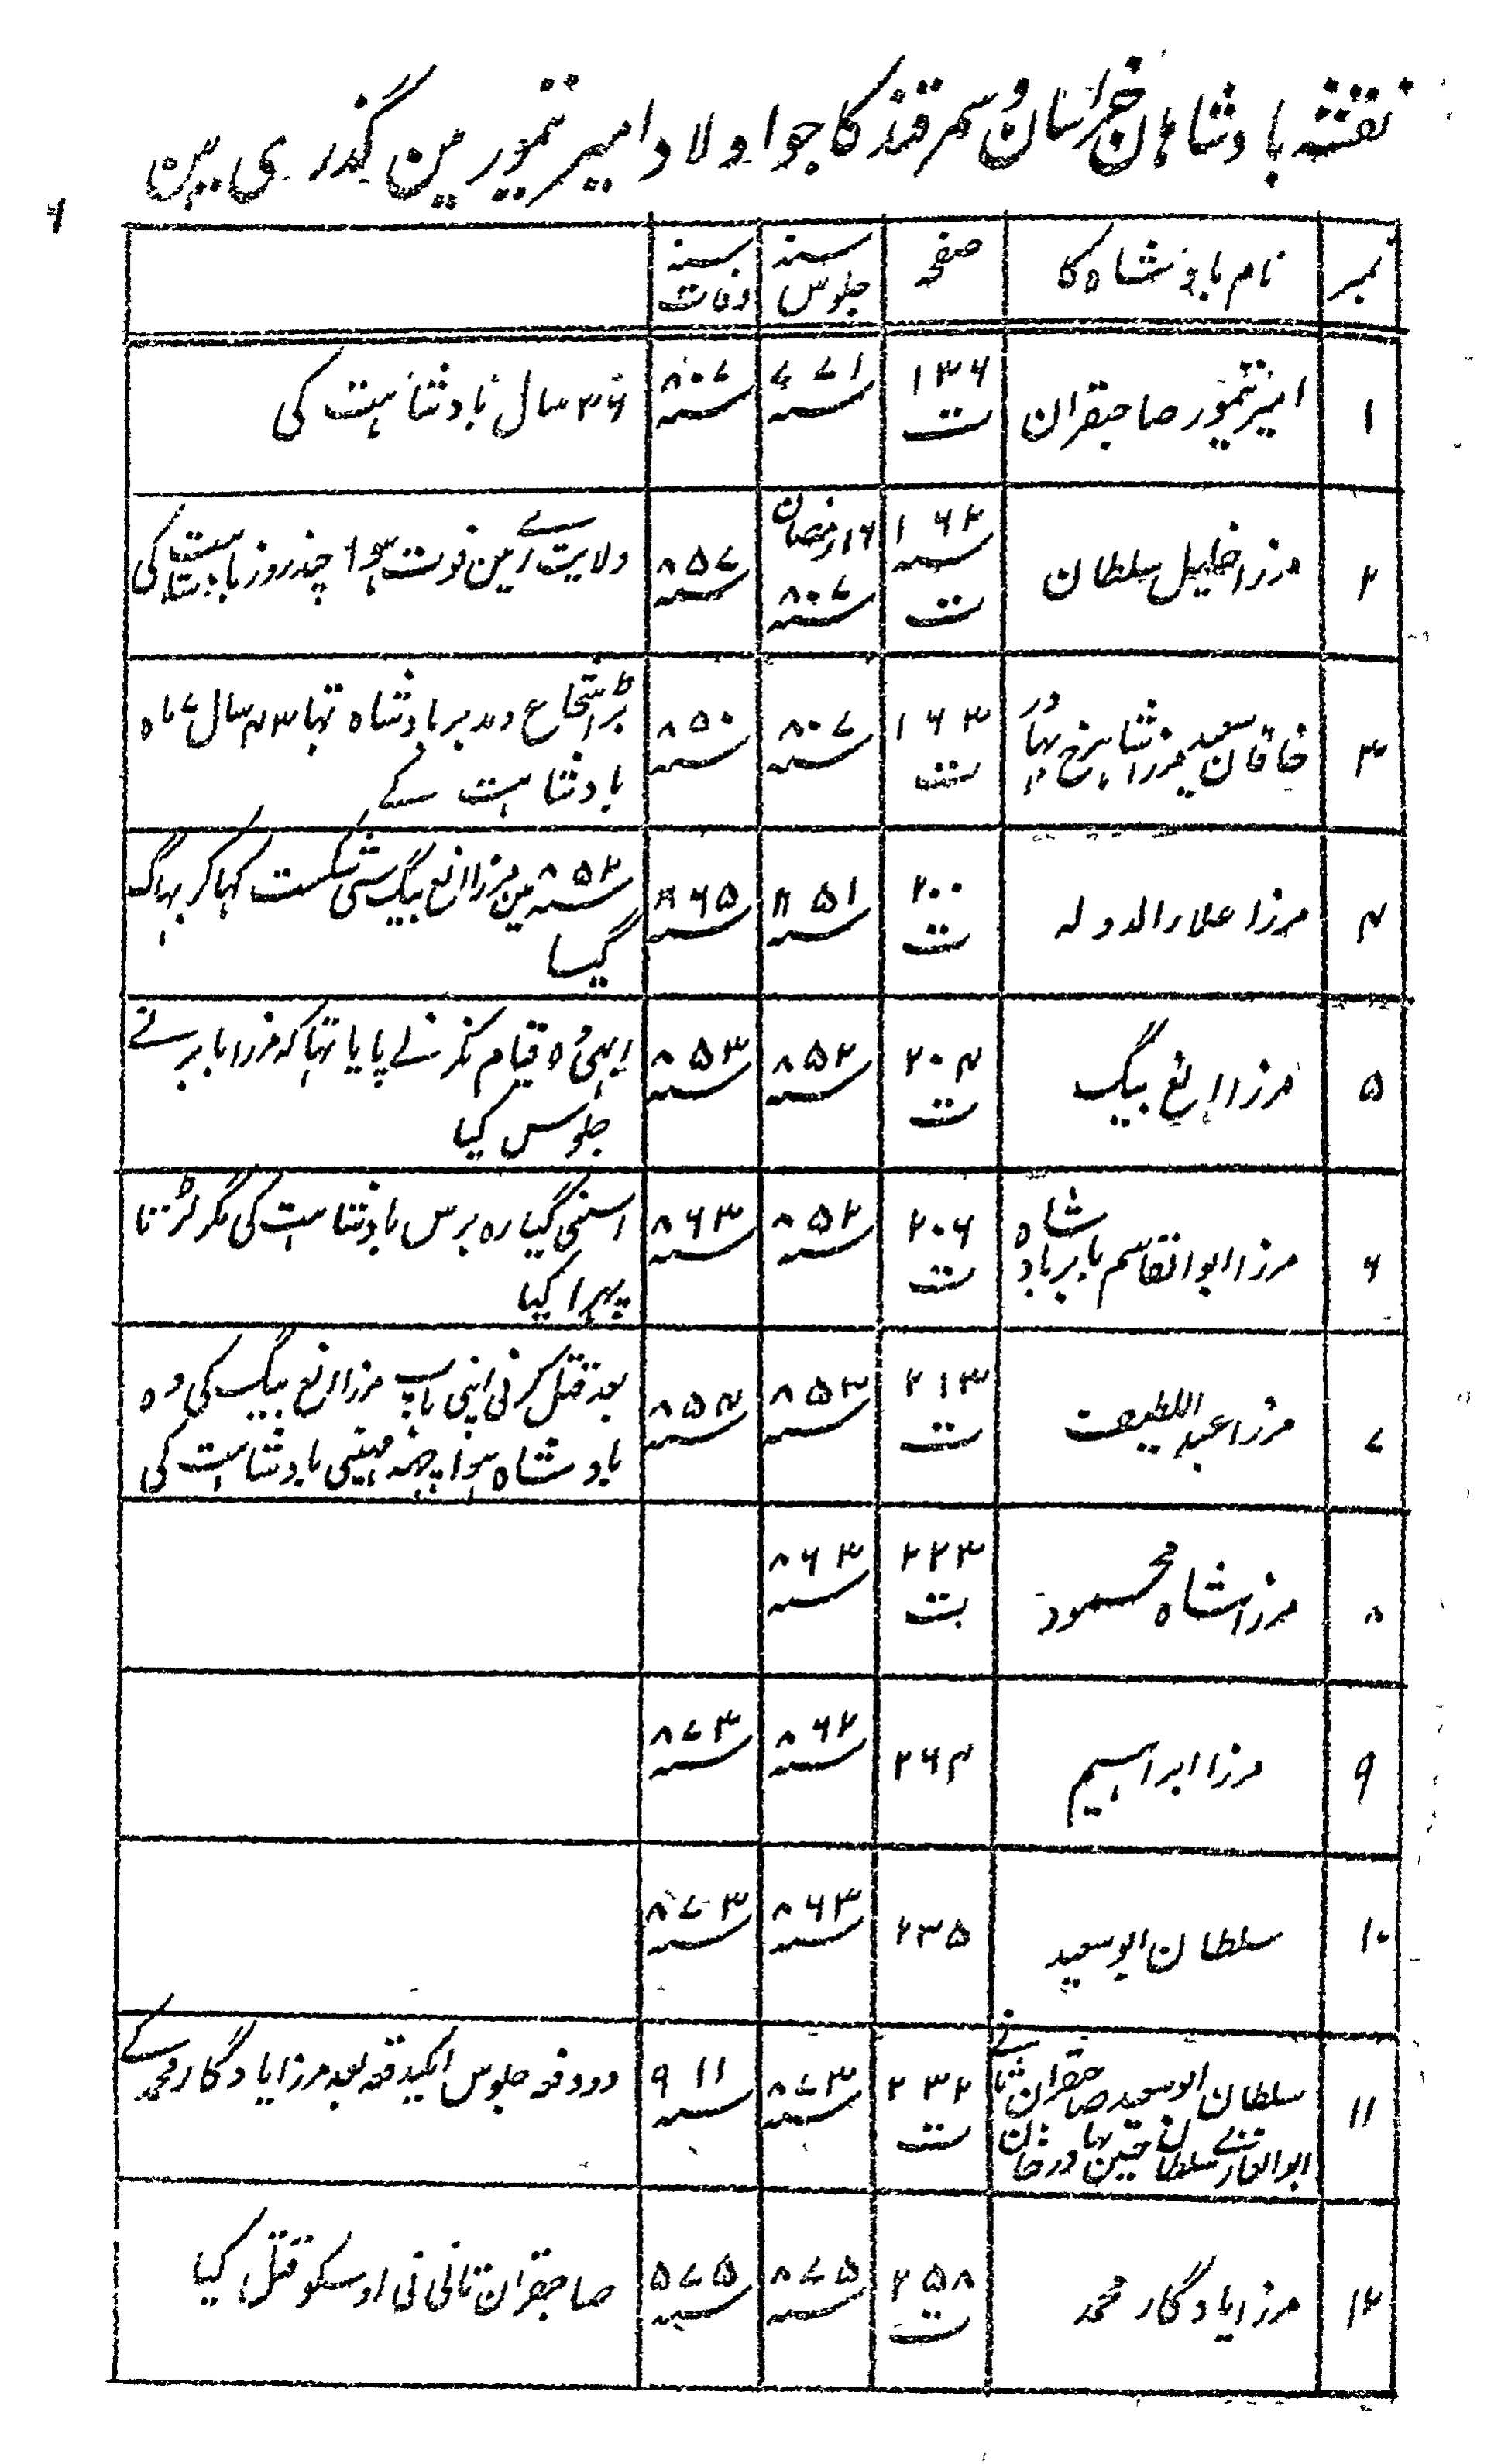 نقشہ بادشاہان خراسان و سمرقند کا جو اولاد امیر تیمور مین گذری ہین
۶
نمبر | نام بادشاہ کا | صفحہ | سنہ جلوس | سنہ وفات
۱ | امیر تیمور صاحبقران | ۱۳۶ ت | ۷۷۱ سنہ | ۸۰۷ سنہ | ۳۶ سال بادشاہت کی
۲ | مرزا خلیل سلطان | ۱۶۲ سنہ ت | ۱۶ رمضان ۸۰۷ سنہ | ۸۵۷ سنہ | ولایت رے مین فوت ہوا چند روز بادشاہت کی
۳ | خاقان سعید مرزا شاہرخ بہادر | ۱۶۳ ت | ۸۰۷ سنہ | ۸۵۰ سنہ | بڑا شجاع و مدبر بادشاہ تہا ۴۳ سال ۷ ماہ
بادشاہت کے
۴ | مرزا علاء الدولہ | ۲۰۰ ت | ۸۵۱ سنہ | ۸۶۵ سنہ | ۸۵۲ سنہ مین مرزا الغ بیگ سی شکست کہا کر بہاگ
گیا
۵ | مرزا الغ بیگ | ۲۰۴ ت | ۸۵۲ سنہ | ۸۵۳ سنہ | ابہی وہ قیام نکرنے پایا تہا کہ مرزا بابر نے
جلوس کیا
۶ | مرزا ابوالقاسم بابر بادشاہ | ۲۰۶ ت | ۸۵۲ سنہ | ۸۶۳ سنہ | اسنی گیارہ برس بادشاہت کی مگر لڑتا
پہرا کیا
۷ | مرزا عبد اللطیف | ۲۱۳ ت | ۸۵۳ سنہ | ۸۵۴ سنہ | بعد قتل کرنی اپنی باپ مرزا الغ بیگ کی وہ
بادشاہ ہوا چند مہینی بادشاہت کی
۸ | مرزا شاہ محمود | ۲۲۳ ت | ۸۶۳ سنہ
۹ | مرزا ابراہیم | ۲۶۴ | ۸۶۲ سنہ | ۸۷۳ سنہ
۱۰ | سلطان ابو سعید | ۲۳۵ | ۸۶۳ سنہ | ۸۷۳ سنہ
۱۱ | سلطان ابو سعید صاحبقران ثانی
ابو الغازی سلطان حسین بہادر خان | ۲۳۲ ت | ۸۷۳ سنہ | ۹۱۱ سنہ | دو دفہ جلوس ایکدفہ بعد مرزا یادگار محمد کے
۱۲ | مرزا یادگار محمد | ۲۵۸ ت | ۸۷۵ سنہ | ۵۷۵ سنہ | صاحبقران ثانی نی اوسکو قتل کیا